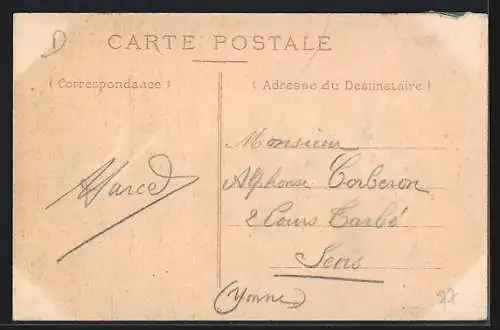 D
CARTE POSTALE
( Correspondance )
( Adresse du Destinataire )
Monsieur
Alphonse Corberon
Marcel
2 Cours Tarbé
Sens
(Yonne)